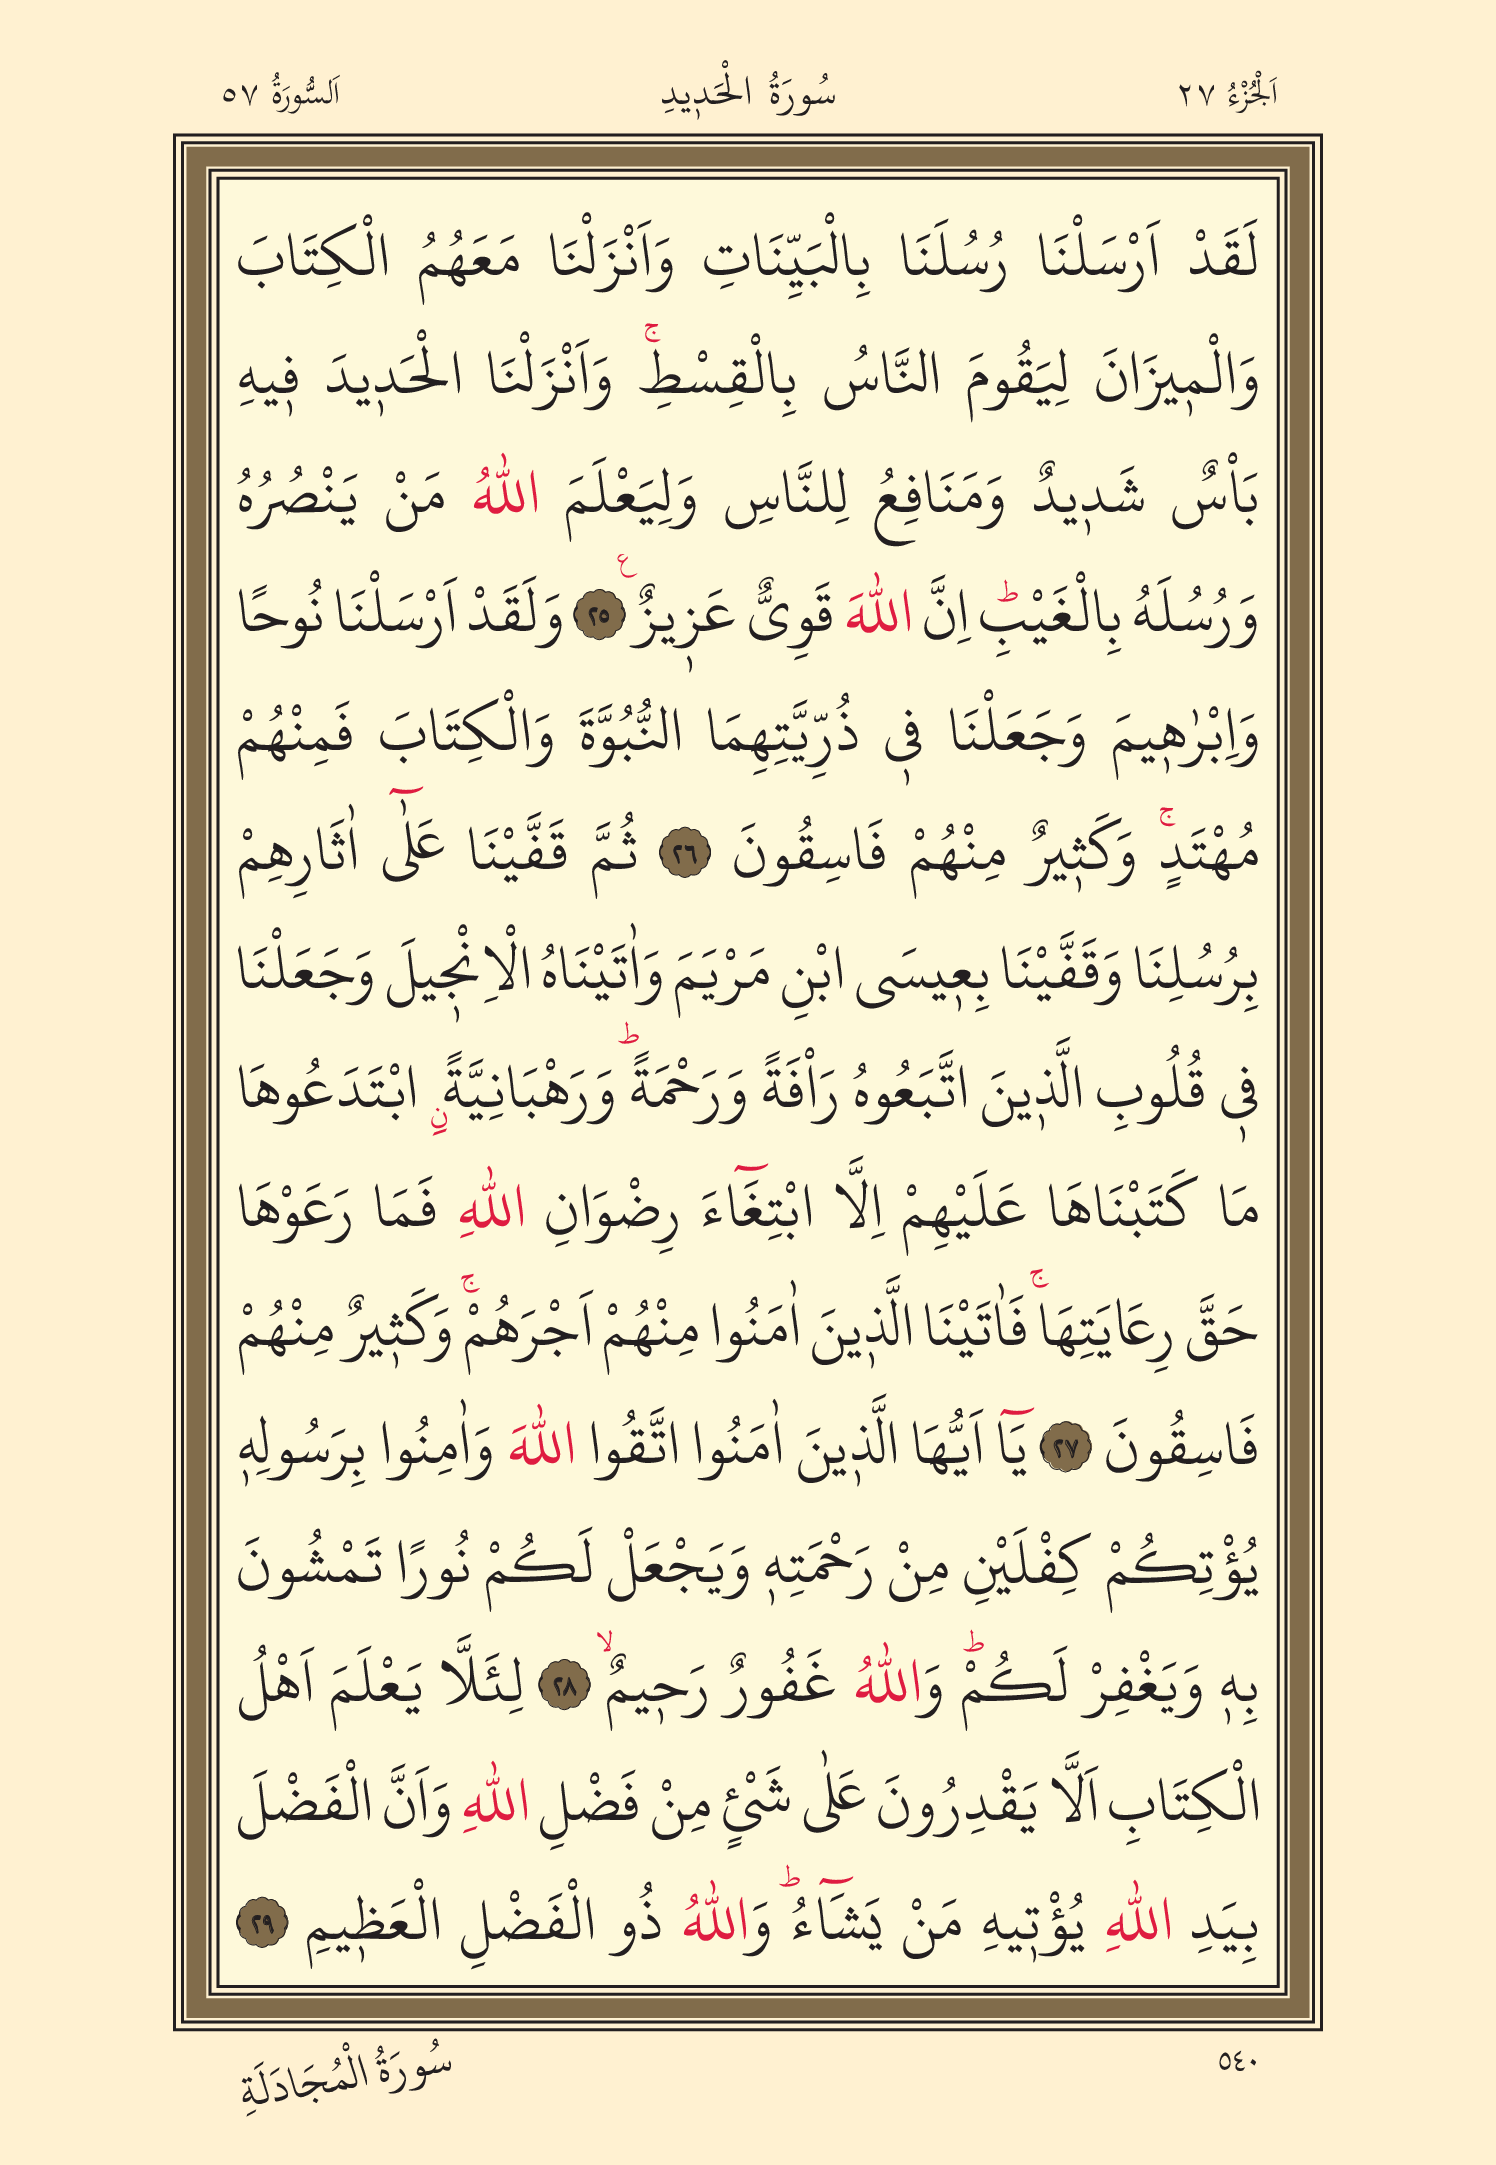 اَلْجُزْءُ ٢٧
سُورَةُ الْحَدٖيدِ
اَلسُّورَةُ ٥٧
لَقَدْ اَرْسَلْنَا رُسُلَنَا بِالْبَيِّنَاتِ وَاَنْزَلْنَا مَعَهُمُ الْكِتَابَ
وَالْمٖيزَانَ لِيَقُومَ النَّاسُ بِالْقِسْطِۚ وَاَنْزَلْنَا الْحَدٖيدَ فٖيهِ
بَاْسٌ شَدٖيدٌ وَمَنَافِعُ لِلنَّاسِ وَلِيَعْلَمَ اللّٰهُ مَنْ يَنْصُرُهُ
وَرُسُلَهُ بِالْغَيْبِؕ اِنَّ اللّٰهَ قَوِىٌّ عَزٖيزٌ ع ٢٥ وَلَقَدْ اَرْسَلْنَا نُوحًا
وَاِبْرٰهٖيمَ وَجَعَلْنَا فٖى ذُرِّيَّتِهِمَا النُّبُوَّةَ وَالْكِتَابَ فَمِنْهُمْ
مُهْتَدٍۚ وَكَثٖيرٌ مِنْهُمْ فَاسِقُونَ ٢٦ ثُمَّ قَفَّيْنَا عَلٰٓى اٰثَارِهِمْ
بِرُسُلِنَا وَقَفَّيْنَا بِعٖيسَى ابْنِ مَرْيَمَ وَاٰتَيْنَاهُ الْاِنْجٖيلَ وَجَعَلْنَا
فٖى قُلُوبِ الَّذٖينَ اتَّبَعُوهُ رَاْفَةً وَرَحْمَةًؕ وَرَهْبَانِيَّةًۨ ابْتَدَعُوهَا
مَا كَتَبْنَاهَا عَلَيْهِمْ اِلَّا ابْتِغَٓاءَ رِضْوَانِ اللّٰهِ فَمَا رَعَوْهَا
حَقَّ رِعَايَتِهَاۚ فَاٰتَيْنَا الَّذٖينَ اٰمَنُوا مِنْهُمْ اَجْرَهُمْۚ وَكَثٖيرٌ مِنْهُمْ
فَاسِقُونَ ٢٧ يَٓا اَيُّهَا الَّذٖينَ اٰمَنُوا اتَّقُوا اللّٰهَ وَاٰمِنُوا بِرَسُولِهٖ
يُؤْتِكُمْ كِفْلَيْنِ مِنْ رَحْمَتِهٖ وَيَجْعَلْ لَكُمْ نُورًا تَمْشُونَ
بِهٖ وَيَغْفِرْ لَكُمْؕ وَاللّٰهُ غَفُورٌ رَحٖيمٌۙ ٢٨ لِئَلَّا يَعْلَمَ اَهْلُ
الْكِتَابِ اَلَّا يَقْدِرُونَ عَلٰى شَيْءٍ مِنْ فَضْلِ اللّٰهِ وَاَنَّ الْفَضْلَ
بِيَدِ اللّٰهِ يُؤْتٖيهِ مَنْ يَشَٓاءُؕ وَاللّٰهُ ذُو الْفَضْلِ الْعَظٖيمِ ٢٩
٥٤٠
سُورَةُ الْمُجَادَلَةِ